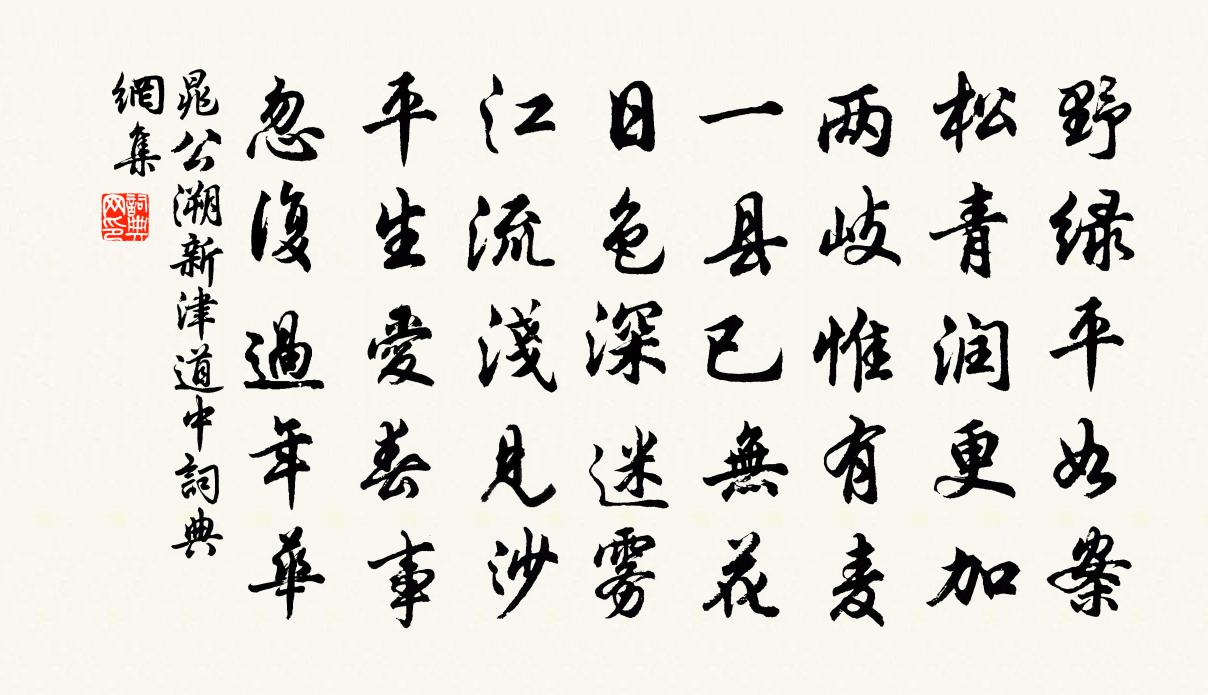 野绿平如案
松青润更加
两岐惟有麦
一县已無花
日色深迷雾
江流淺見沙
平生愛春事
忽復過年華
晁公溯新津道中詞典
網集
詞典网印